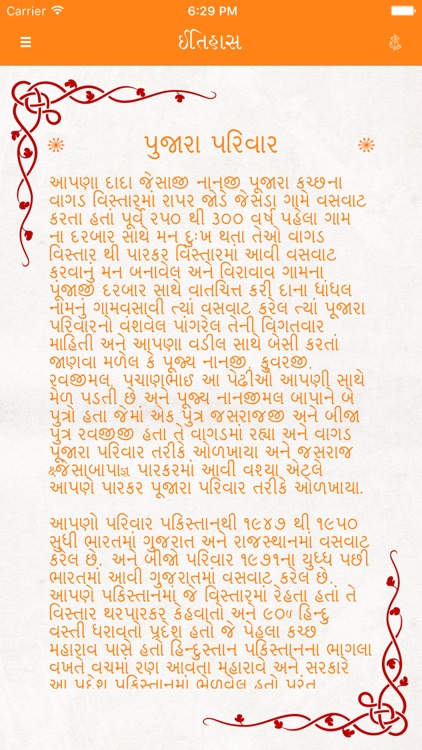 Carrier 6:29 PM
ઈતિહાસ
પુજારા પરિવાર
આપણા દાદા જેસાજી નાનજી પૂજારા કચ્છના
વાગડ વિસ્તારમાં રાપર જોડે જેસડા ગામે વસવાટ
કરતા હતાં પૂર્વે ૨૫૦ થી ૩૦૦ વર્ષ પહેલા ગામ
ના દરબાર સાથે મન દુઃખ થતા તેઓ વાગડ
વિસ્તાર થી પારકર વિસ્તારમાં આવી વસવાટ
કરવાનું મન બનાવેલ અને વિરાવાવ ગામના
પૂંજાજી દરબાર સાથે વાતચિત્ત કરી દાના ધાંધલ
નામનું ગામવસાવી ત્યાં વસવાટ કરેલ ત્યાં પૂજારા
પરિવારનો વંશવેલ પાંગરેલ તેની વિગતવાર
માહિતી અને આપણા વડીલ સાથે બેસી કરતાં
જાણવા મળેલ કે પૂજ્ય નાનજી, કુવરજી,
રવજીમલ, પચાણભાઈ આ પેઢીઓ આપણી સાથે
મેળ પડતી છે અને પૂજ્ય નાનજીમલ બાપાને બે
પુત્રો હતા જેમાં એક પુત્ર જસરાજજી અને બીજા
પુત્ર રવજીજી હતા તે વાગડમાં રહ્યા અને વાગડ
પૂજારા પરિવાર તરીકે ઓળખાયા અને જસરાજ
જેસાબાપા પારકરમાં આવી વશ્યા એટલે
આપણે પારકર પૂજારા પરિવાર તરીકે ઓળખાયા.
આપણો પરિવાર પકિસ્તાનથી ૧૯૪૭ થી ૧૯૫૦
સુધી ભારતમાં ગુજરાત અને રાજસ્થાનમાં વસવાટ
કરેલ છે. અને બીજો પરિવાર ૧૯૭૧ના યુધ્ધ પછી
ભારતમાં આવી ગુજરાતમાં વસવાટ કરેલ છે.
આપણે પકિસ્તાનમાં જે વિસ્તારમાં રેહતા હતાં તે
વિસ્તાર થરપારકર કેહવાતો અને ૯૦% હિન્દુ
વસ્તી ધરાવતો પ્રદેશ હતો જે પેહલા કચ્છ
મહારાવ પાસે હતો હિન્દુસ્તાન પકિસ્તાનના ભાગલા
વખતે વચમાં રણ આવતા મહારાવે અને સરકારે
આ પ્રદેશ પકિસ્તાનમાં ભેળવેલ હતો પરંતુ